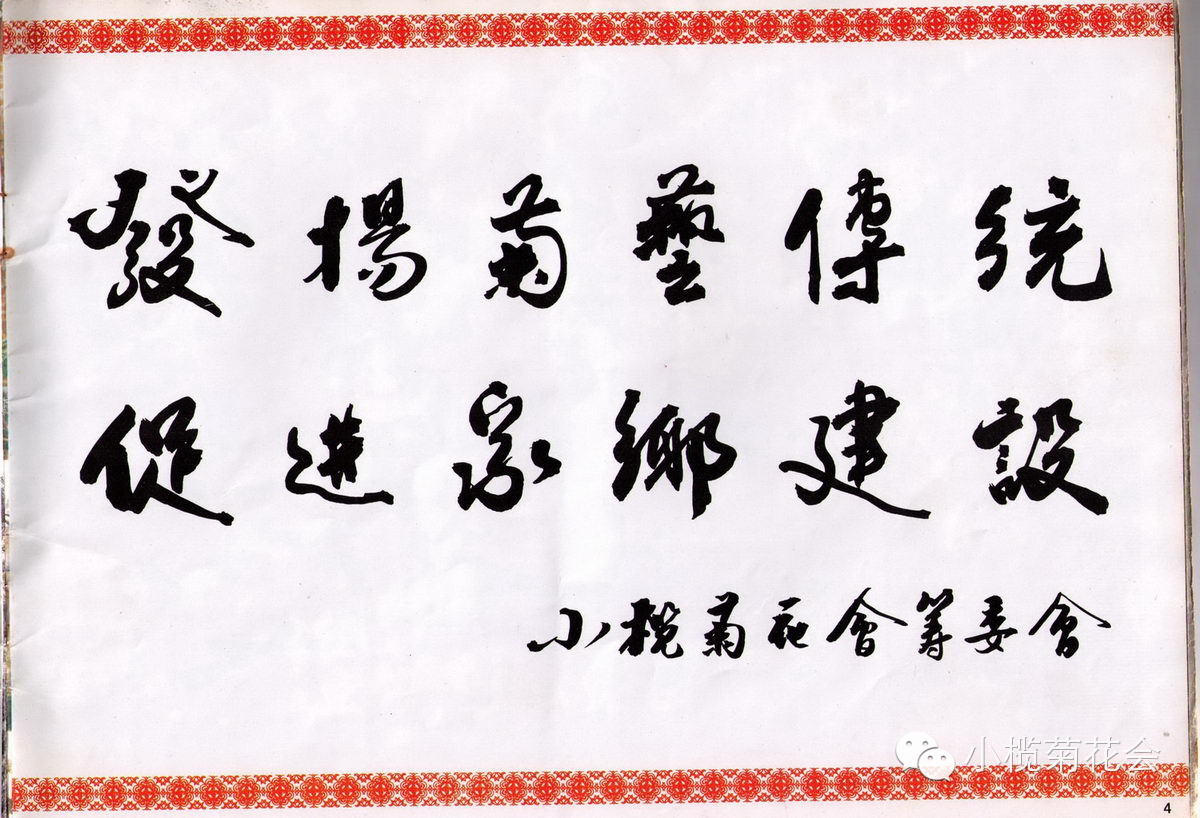 發揚菊藝傳統
促進家鄉建設
小榄菊花會筹委會
小榄菊花会
4